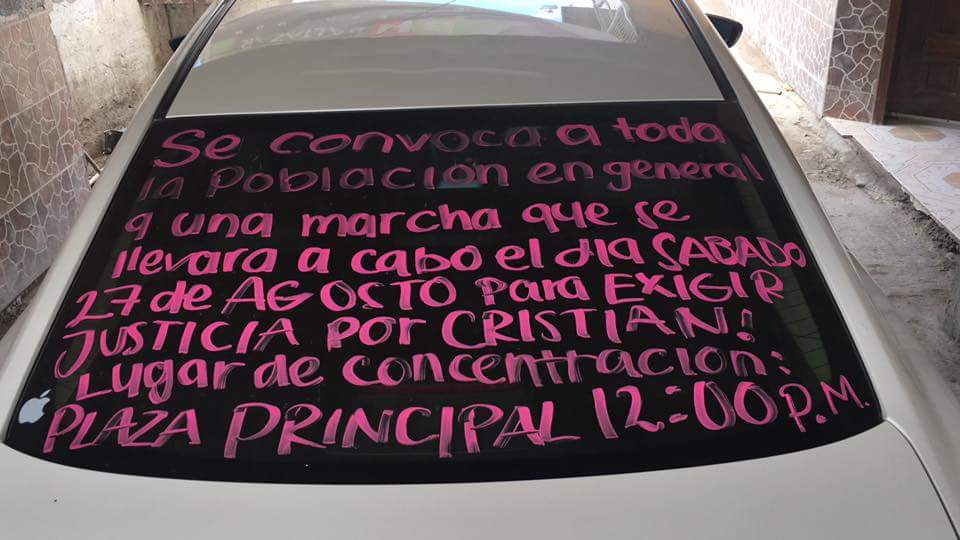 Se convoca a toda
la Población en general
a una marcha que se
llevara a cabo el dia SABADO
27 de AGOSTO Para EXIGIR
JUSTICIA por CRISTIAN!
Lugar de concentracion:
PLAZA PRINCIPAL 12:00 P.M.